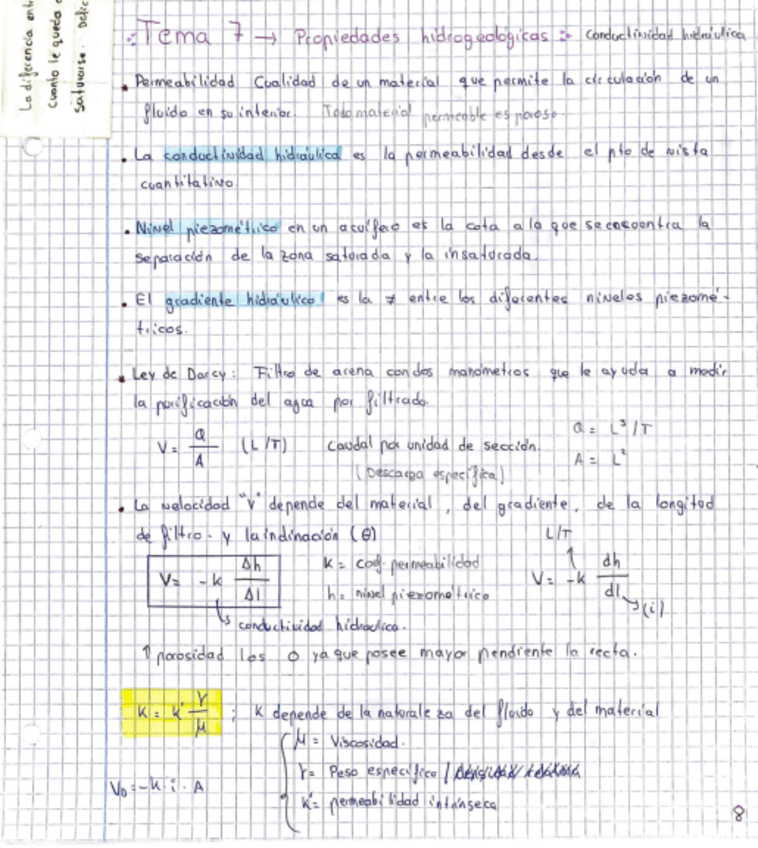 La diferencia entr
cuanto le queda
saturarse. Defic
Tema 7 → Propiedades hidrogeológicas : conductividad hidráulica
• Permeabilidad Cualidad de un material que permite la circulación de un
fluido en su interior. Todo material permeable es poroso.
• La conductividad hidráulica es la permeabilidad desde el pto de vista
cuantitativo.
• Nivel piezométrico en un acuífero es la cota a la que se encuentra la
separación de la zona saturada y la insaturada.
• El gradiente hidráulico es la ≠ entre los diferentes niveles piezomé-
tricos.
• Ley de Darcy: Filtro de arena con dos manómetros que le ayuda a medir
la purificación del agua por filtrado.
V = Q/A (L/T) caudal por unidad de sección. Q = L³/T
(Descarga específica) A = L²
• La velocidad "v" depende del material, del gradiente, de la longitud
de filtro. y la indinación (θ) L/T
V = -k Δh/Δl k = coef. permeabilidad V = -k dh/dl
h = nivel piezométrico (i)
↳ conductividad hidraulica.
↑ porosidad los 0 ya que posee mayor pendiente la recta.
K = k' γ/μ ; K depende de la naturaleza del fluido y del material
μ = Viscosidad.
γ = Peso específico /
V₀ = -k · i · A
k' = permeabilidad intrínseca
8